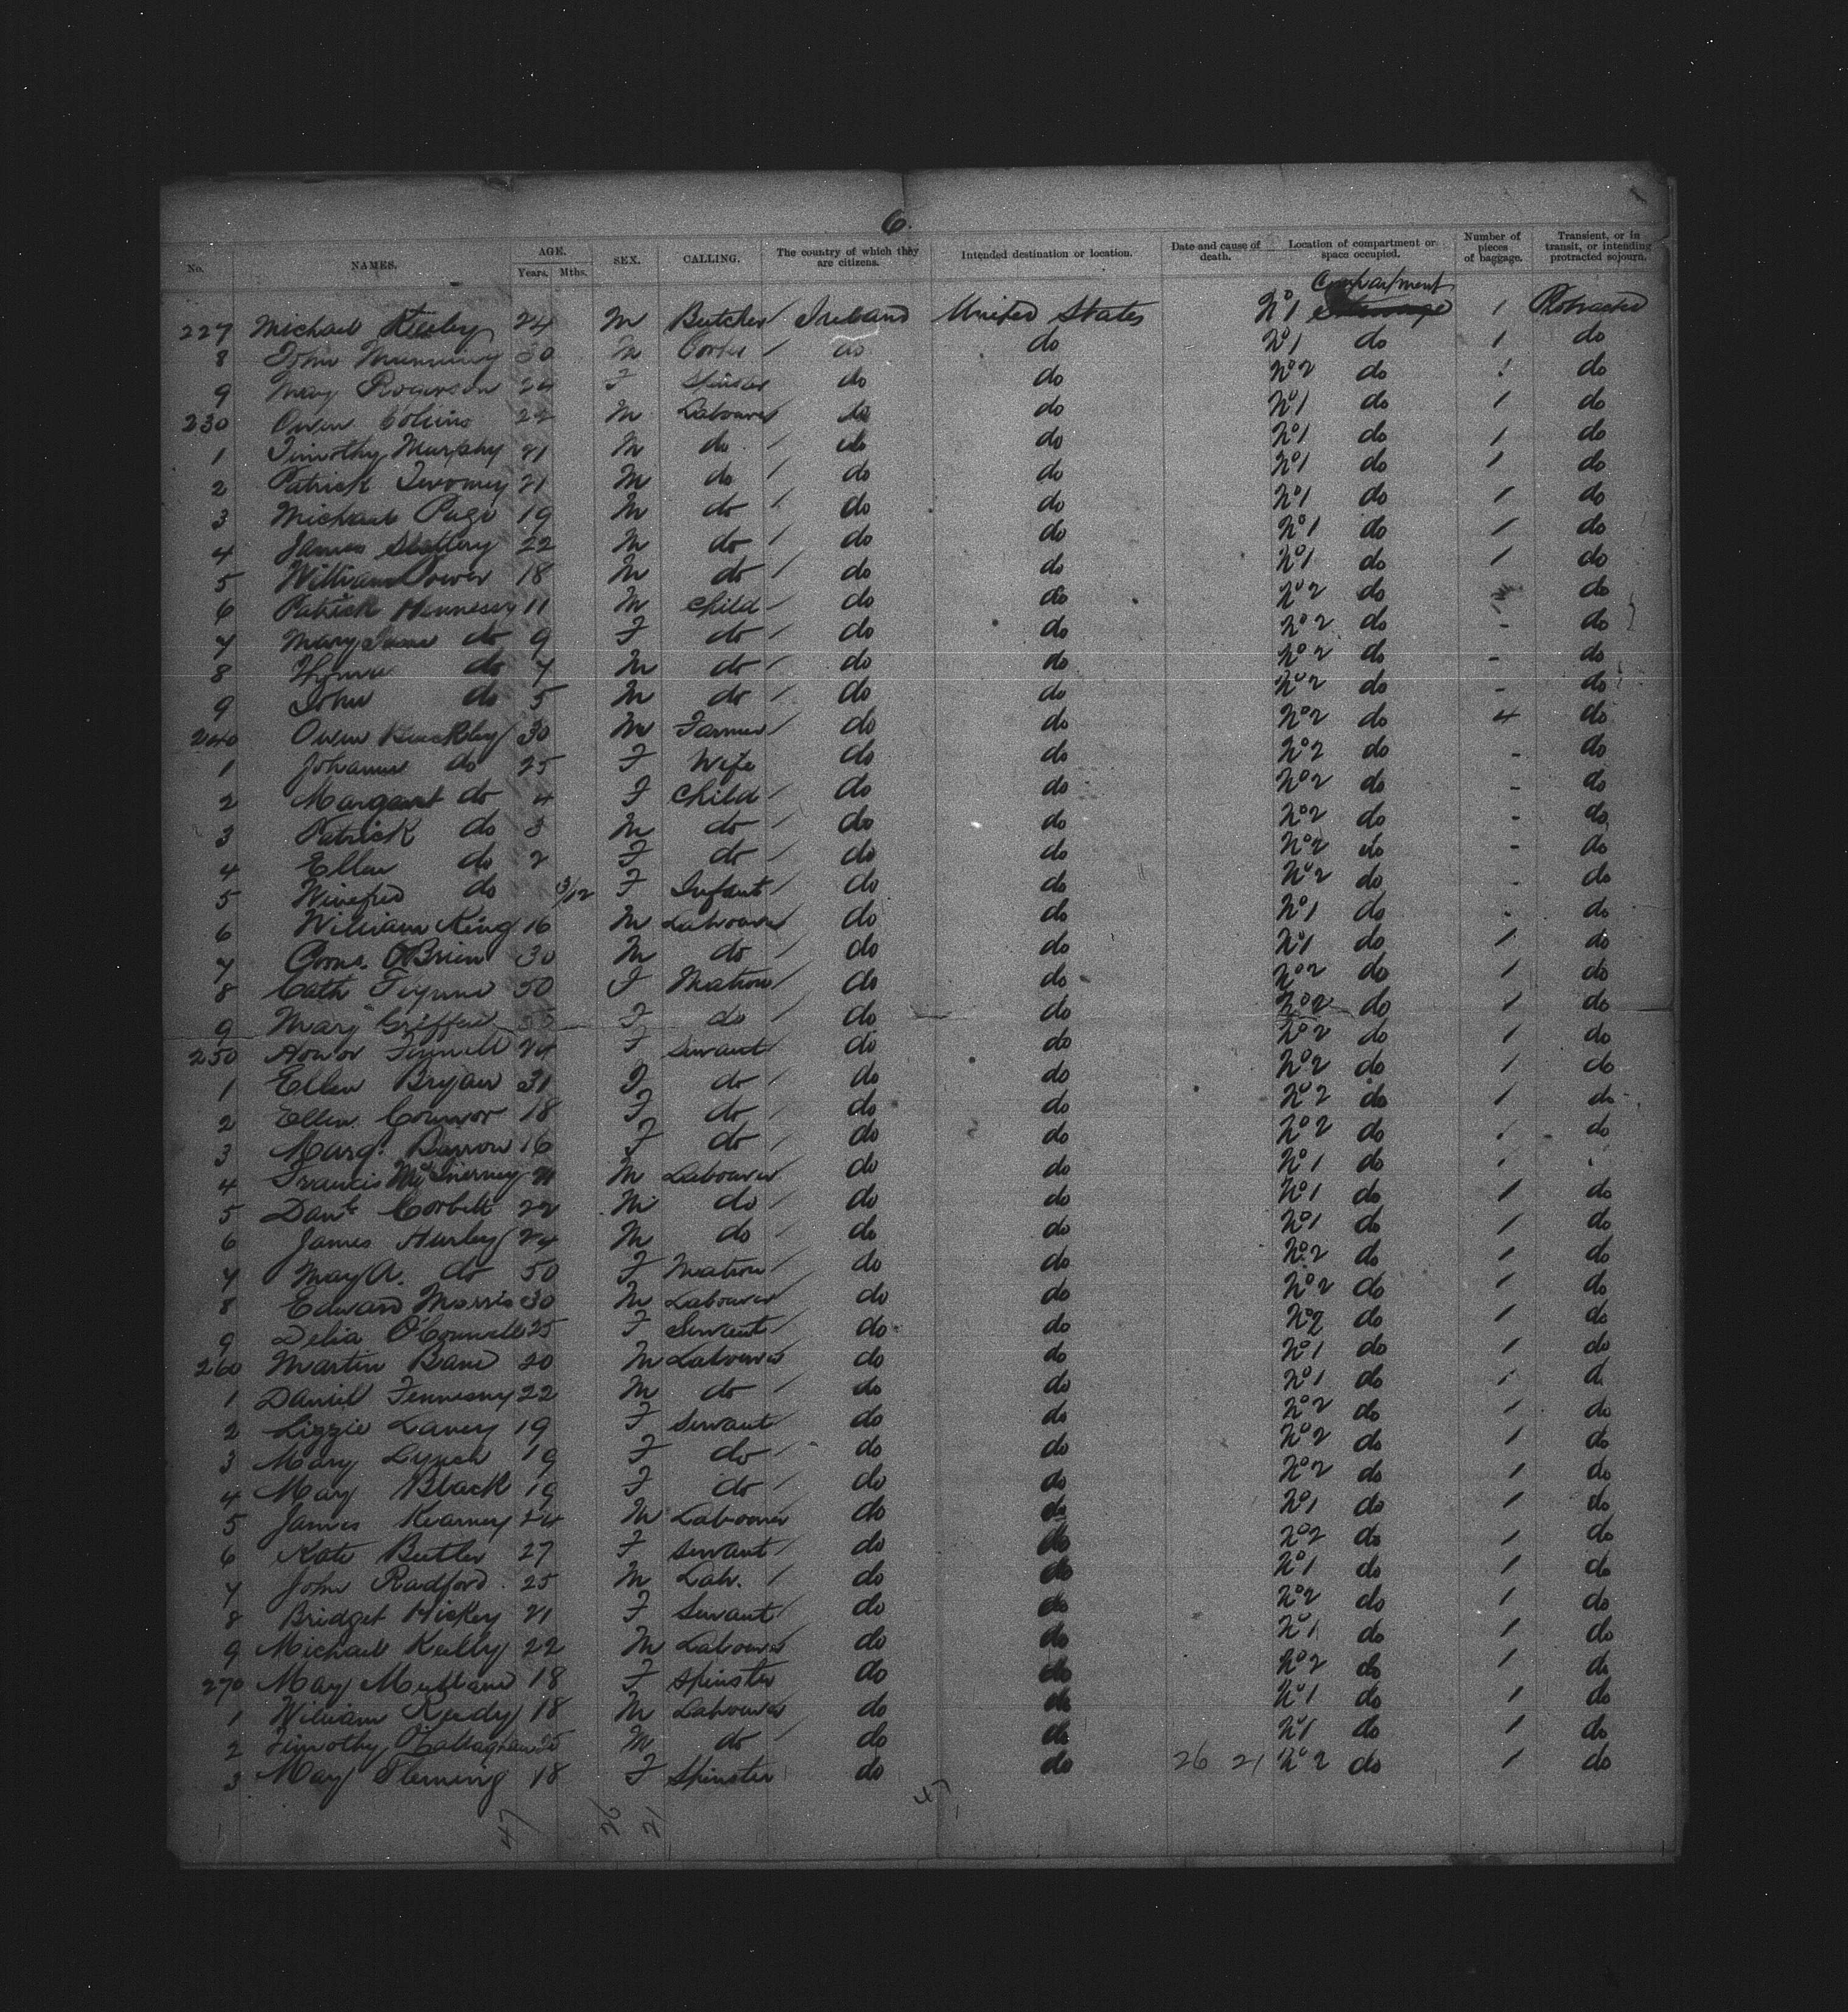 6.
No. NAMES. AGE. Years. Mths. SEX. CALLING. The country of which they are citizens. Intended destination or location. Date and cause of death. Location of compartment or space occupied. Number of pieces of baggage. Transient, or in transit, or intending protracted sojourn.
Compartment
227 Michael 24 M Butcher Ireland United States No 1 1 Protracted
8 John 30 M do do No 1 do 1 do
9 Mary 24 F Spinster do do No 2 do 1 do
230 Owen Collins 22 M Labourer do do No 1 do 1 do
1 Timothy Murphy 21 M do do do No 1 do 1 do
2 Patrick Twomey 21 M do do do No 1 do 1 do
3 Michael Page 19 M do do do No 1 do 1 do
4 James Slattery 22 M do do do No 1 do 1 do
5 William Power 18 M do do do No 1 do 1 do
6 Patrick Hennessy 11 M Child do do No 2 do do
7 Mary Jane do 9 F do do do No 2 do - do
8 do 7 M do do do No 2 do - do
9 John do 5 M do do do No 2 do - do
240 Owen Buckley 30 M Farmer do do No 2 do 4 do
1 Johanna do 25 F Wife do do No 2 do - do
2 Margaret do 4 F Child do do No 2 do - do
3 Patrick do 3 M do do do No 2 do - do
4 Ellen do 2 F do do do No 2 do - do
5 Winefred do 3/12 F Infant do do No 2 do - do
6 William King 16 M Labourer do do No 1 do do
7 O'Brien 30 M do do do No 1 do 1 do
8 Cath 50 F Matron do do No 2 do 1 do
9 Mary Griffin F do do do No 2 do 1 do
250 Honor Fennell 24 F Servant do do No 2 do 1 do
1 Ellen Bryan 31 F do do do No 2 do 1 do
2 Ellen Connor 18 F do do do No 2 do 1 do
3 Margt. Barron 16 F do do do No 2 do do
4 Francis McInerney 21 M Labourer do do No 1 do
5 Danl Corbett 22 M do do do No 1 do 1 do
6 James Hurley 24 M do do do No 1 do 1 do
7 Mary A. do 50 F Matron do do No 2 do 1 do
8 Edward Morris 30 M Labourer do do No 2 do 1 do
9 Delia O'Connell 25 F Servant do do No 2 do 1 do
260 Martin Bane 20 M Labourer do do No 1 do 1 do
1 Daniel Fennesny 22 M do do do No 1 do 1 do
2 Lizzie Lavery 19 F Servant do do No 2 do 1 do
3 Mary Lynch 19 F do do do No 2 do 1 do
4 Mary Black 19 F do do do No 2 do 1 do
5 James Kearney 24 M Labourer do do No 1 do 1 do
6 Kate Butler 27 F Servant do do No 2 do 1 do
7 John Radford 25 M Lab. do do No 1 do 1 do
8 Bridget Hickey 21 F Servant do do No 2 do 1 do
9 Michael Kelly 22 M Labourer do do No 1 do 1 do
270 Mary Mullane 18 F Spinster do do No 2 do 1 do
1 William Reedy 18 M Labourer do do No 1 do 1 do
2 Timothy O'Callaghan 25 M do do do No 1 do 1 do
3 Mary Fleming 18 F Spinster do do 26 21 No 2 do 1 do
47 26 21 47